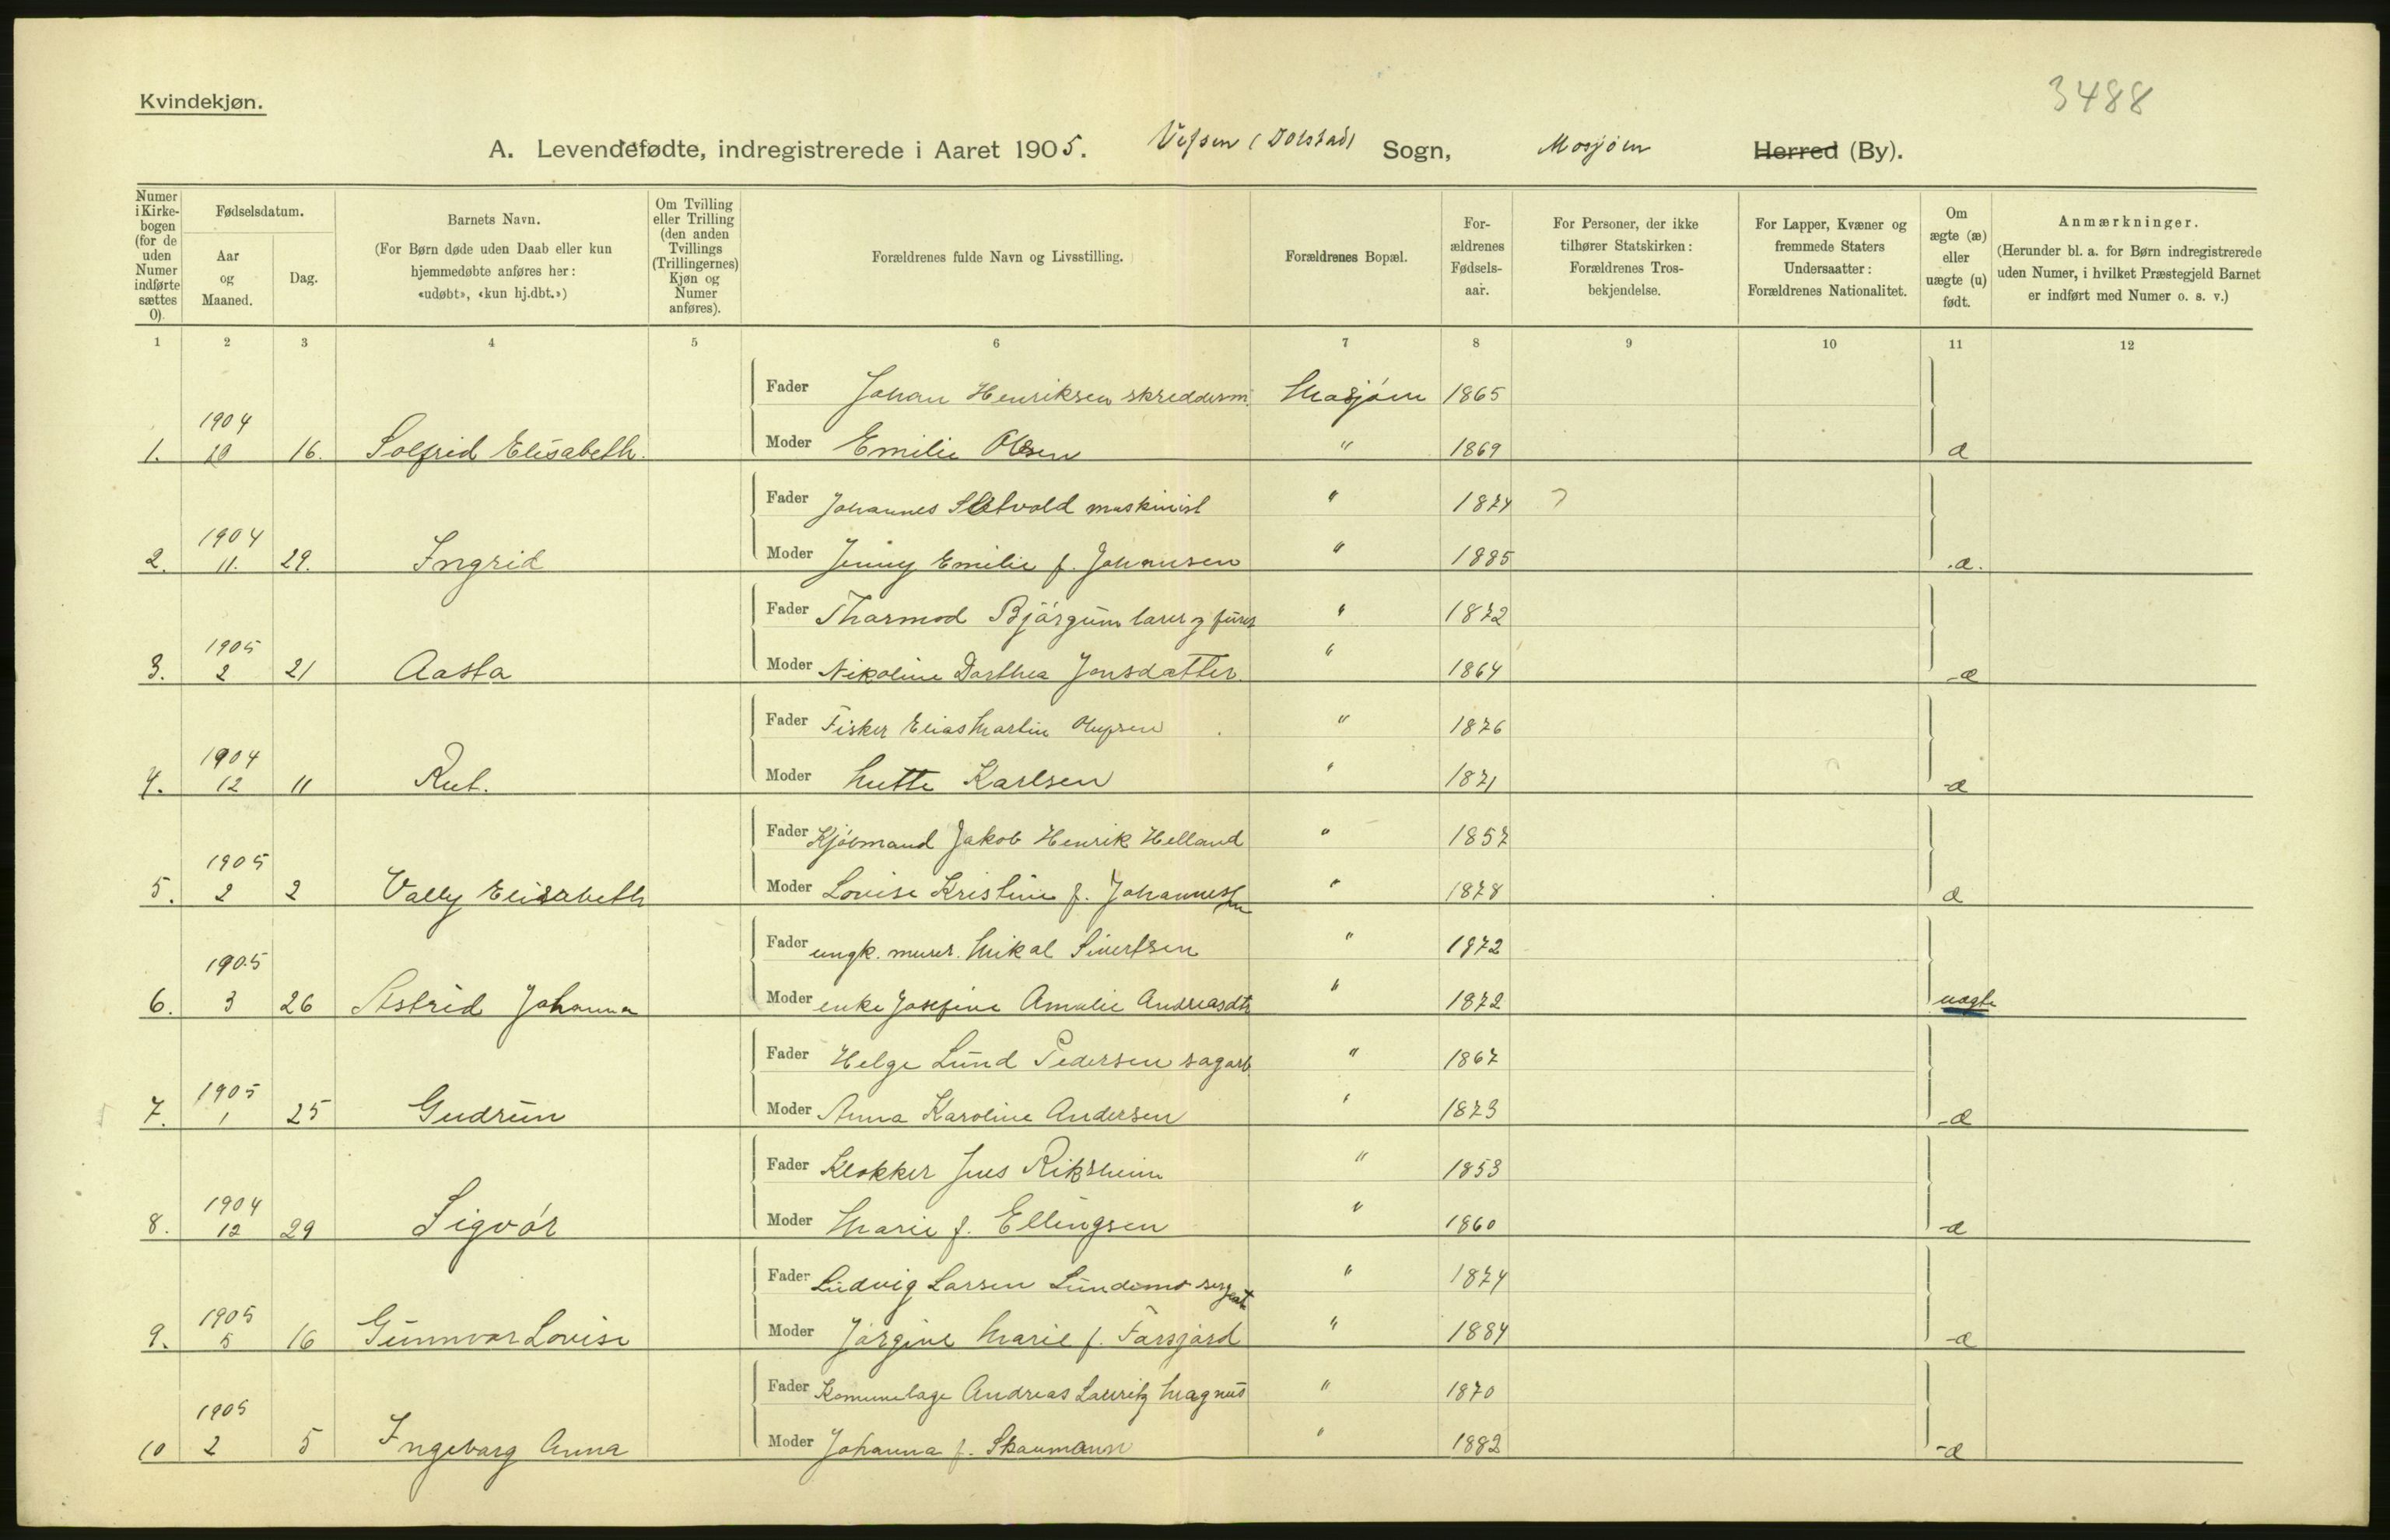 3488
Kvindekjøn.
A. Levendefødte, indregistrerede i Aaret 1905. Vefsen (Dolstad) Sogn, Mosjøen Herred (By).
Numer i Kirkebogen (for de uden Numer indførte sættes 0).
Fødselsdatum.
Aar og Maaned.
Dag.
Barnets Navn.
(For Børn døde uden Daab eller kun hjemmedøbte anføres her: «udøbt», «kun hj.dbt.»)
Om Tvilling eller Trilling (den anden Tvillings (Trillingernes) Kjøn og Numer anføres).
Forældrenes fulde Navn og Livsstilling.
Forældrenes Bopæl.
Forældrenes Fødselsaar.
For Personer, der ikke tilhører Statskirken: Forældrenes Trosbekjendelse.
For Lapper, Kvæner og fremmede Staters Undersaatter: Forældrenes Nationalitet.
Om ægte (æ) eller uægte (u) født.
Anmærkninger.
(Herunder bl. a. for Børn indregistrerede uden Numer, i hvilket Præstegjeld Barnet er indført med Numer o. s. v.)
1 2 3 4 5 6 7 8 9 10 11 12
Fader Johan Henriksen skredderm. Mosjøen 1865
1. 1904 10 16. Solfrid Elisabeth. Moder Emilie Olsen " 1869 æ
Fader Johannes maskinist " 1874
2. 1904 11. 29. Ingrid Moder Jenny Emilie f. Johansen " 1885 æ.
Fader Thormod Bjørgum " 1872
3. 1905 2 21 Aasta Moder Nikoline Dorthea Jonsdatter " 1864 æ
Fader Fisker Elias Martin Olufsen " 1876
4. 1904 12 11 Rut. Moder Mette Karlsen " 1871 æ
Fader Kjøbmand Jakob Henrik Helland " 1857
5. 1905 2 2 Vally Elisabeth Moder Lovise Kristine f. Johannessen " 1878 æ
Fader ungk. murer. Mikal Sivertsen " 1872
6. 1905 3 26 Astrid Johanna Moder enke Josefine Amalie Andreasdtr " 1872 uægte
Fader Helge Lund Pedersen sagarb. " 1867
7. 1905 1 25 Gudrun Moder Anna Karoline Andersen " 1873 æ
Fader Klokker Jens Riksheim " 1853
8. 1904 12 29 Sigvór Moder Marie f. Ellingsen " 1860 æ
Fader Ludvig Larsen Lundemo sergeant " 1874
9. 1905 5 16 Gunnvor Lovise Moder Jørgine Marie f. Forsjord " 1884 æ
Fader Andreas Lauritz Magnus " 1870
10 1905 2 5 Ingeborg Anna Moder Johanna f. Skaumann " 1882 æ